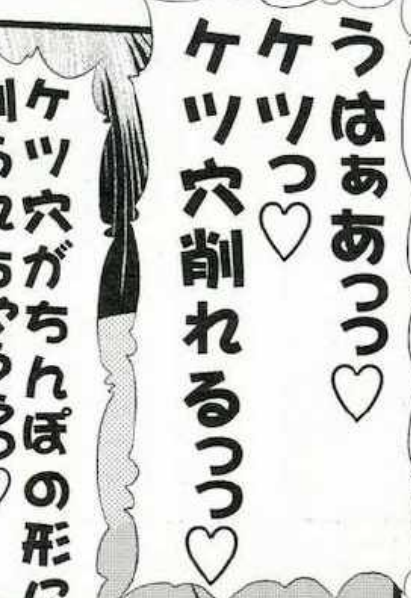 うはぁあっっ♡
ケツっ♡
ケツ穴削れるっっ♡
ケツ穴がちんぽの形に
削られちゃうぅっ♡